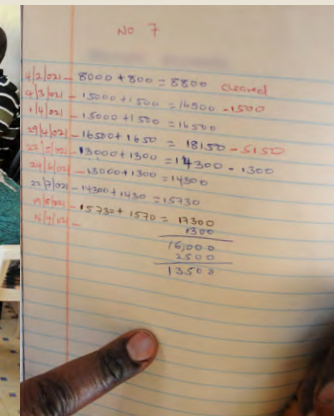 NO 7
4/2/021 - 8000 + 800 = 8800 cleared
4/3/021 - 15000 + 1500 = 16500 - 1500
1/4/021 - 15000 + 1500 = 16500
29/4/021 - 16500 + 1650 = 18150 - 5150
22/5/021 - 13000 + 1300 = 14300 - 1300
24/6/021 - 13000 + 1300 = 14300
22/7/021 - 14300 + 1430 = 15730
19/8/021 - 15730 + 1570 = 17300
16/9/021 - 1300
16,000
2500
13500